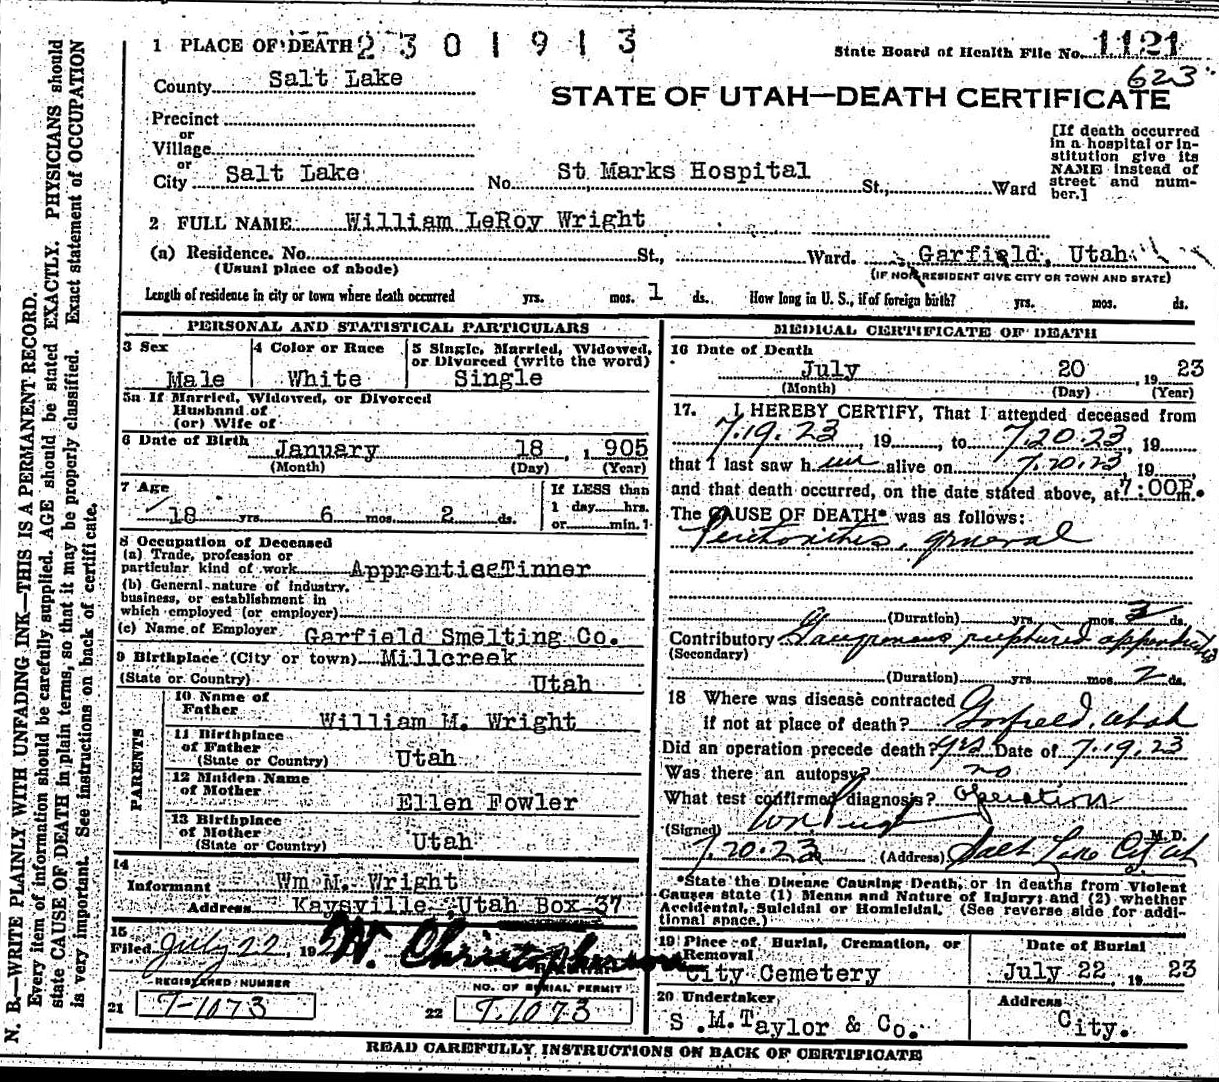 1 PLACE OF DEATH 2301913
State Board of Health File No. 1121
623
County Salt Lake
STATE OF UTAH—DEATH CERTIFICATE
Precinct
or
Village
or
City Salt Lake No. St Marks Hospital St., Ward
[If death occurred in a hospital or institution give its NAME instead of street and number.]
2 FULL NAME William LeRoy Wright
(a) Residence. No. St., Ward. Garfield, Utah
(Usual place of abode) (IF NON RESIDENT GIVE CITY OR TOWN AND STATE)
Length of residence in city or town where death occurred yrs. mos. 1 ds. How long in U. S., if of foreign birth? yrs. mos. ds.
PERSONAL AND STATISTICAL PARTICULARS
3 Sex Male
4 Color or Race White
5 Single, Married, Widowed, or Divorced (write the word) Single
5a If Married, Widowed, or Divorced
Husband of
(or) Wife of
6 Date of Birth January 18, 1905
(Month) (Day) (Year)
7 Age 18 yrs. 6 mos. 2 ds.
If LESS than
1 day hrs.
or min.?
8 Occupation of Deceased
(a) Trade, profession or
particular kind of work Apprentice Tinner
(b) General nature of industry,
business, or establishment in
which employed (or employer)
(c) Name of Employer Garfield Smelting Co.
9 Birthplace (City or town) Millcreek
(State or Country) Utah
PARENTS
10 Name of
Father William M. Wright
11 Birthplace
of Father
(State or Country) Utah
12 Maiden Name
of Mother Ellen Fowler
13 Birthplace
of Mother
(State or Country) Utah
14
Informant Wm M. Wright
Address Kaysville, Utah Box 37
15
Filed July 22, 19 W. Christopherson
REGISTRAR
REGISTERED NUMBER
21 T-1073
NO. OF BURIAL PERMIT
22 T.1073
MEDICAL CERTIFICATE OF DEATH
16 Date of Death
July 20, 1923
(Month) (Day) (Year)
17. I HEREBY CERTIFY, That I attended deceased from
7.19.23, 19, to 7.20.23, 19
that I last saw him alive on 7.20.23, 19
and that death occurred, on the date stated above, at 7:00P m.
The CAUSE OF DEATH* was as follows:
Peritonitis, general
(Duration) yrs. mos. 3 ds.
Contributory Gangrenous ruptured appendicitis
(Secondary)
(Duration) yrs. mos. 2 ds.
18 Where was disease contracted
if not at place of death? Garfield, Utah
Did an operation precede death? yes Date of 7.19.23
Was there an autopsy? no
What test confirmed diagnosis? operation
(Signed) M. D.
7.20.23 (Address) Salt Lake City Ut
*State the Disease Causing Death, or in deaths from Violent
Causes state (1) Means and Nature of Injury; and (2) whether
Accidental, Suicidal or Homicidal. (See reverse side for addi-
tional space.)
19 Place of Burial, Cremation, or
Removal
City Cemetery
Date of Burial
July 22, 1923
20 Undertaker
S. M. Taylor & Co.
Address
City.
READ CAREFULLY INSTRUCTIONS ON BACK OF CERTIFICATE
N. B.—WRITE PLAINLY WITH UNFADING INK—THIS IS A PERMANENT RECORD.
Every item of information should be carefully supplied. AGE should be stated EXACTLY. PHYSICIANS should
state CAUSE OF DEATH in plain terms, so that it may be properly classified. Exact statement of OCCUPATION
is very important. See instructions on back of certificate.